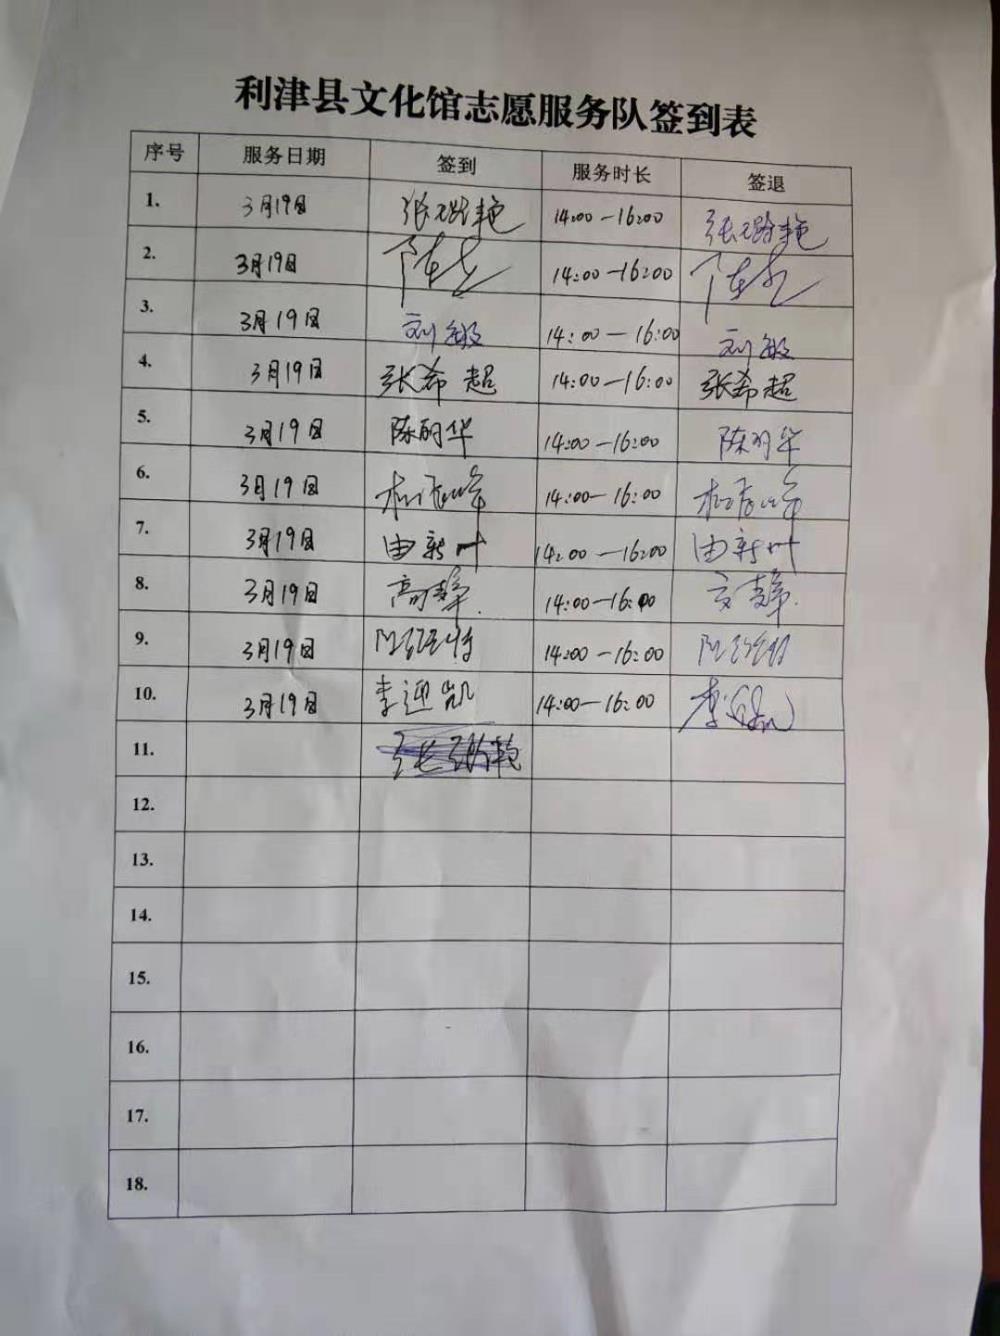 利津县文化馆志愿服务队签到表
序号 服务日期 签到 服务时长 签退
1. 3月19日 张璐艳 14:00-16:00 张璐艳
2. 3月19日 14:00-16:00
3. 3月19日 刘敏 14:00-16:00 刘敏
4. 3月19日 张希超 14:00-16:00 张希超
5. 3月19日 陈丽华 14:00-16:00 陈丽华
6. 3月19日 14:00-16:00
7. 3月19日 由新叶 14:00-16:00 由新叶
8. 3月19日 高静 14:00-16:00 高静
9. 3月19日 14:00-16:00
10. 3月19日 李迎凯 14:00-16:00 李迎凯
11.
12.
13.
14.
15.
16.
17.
18.